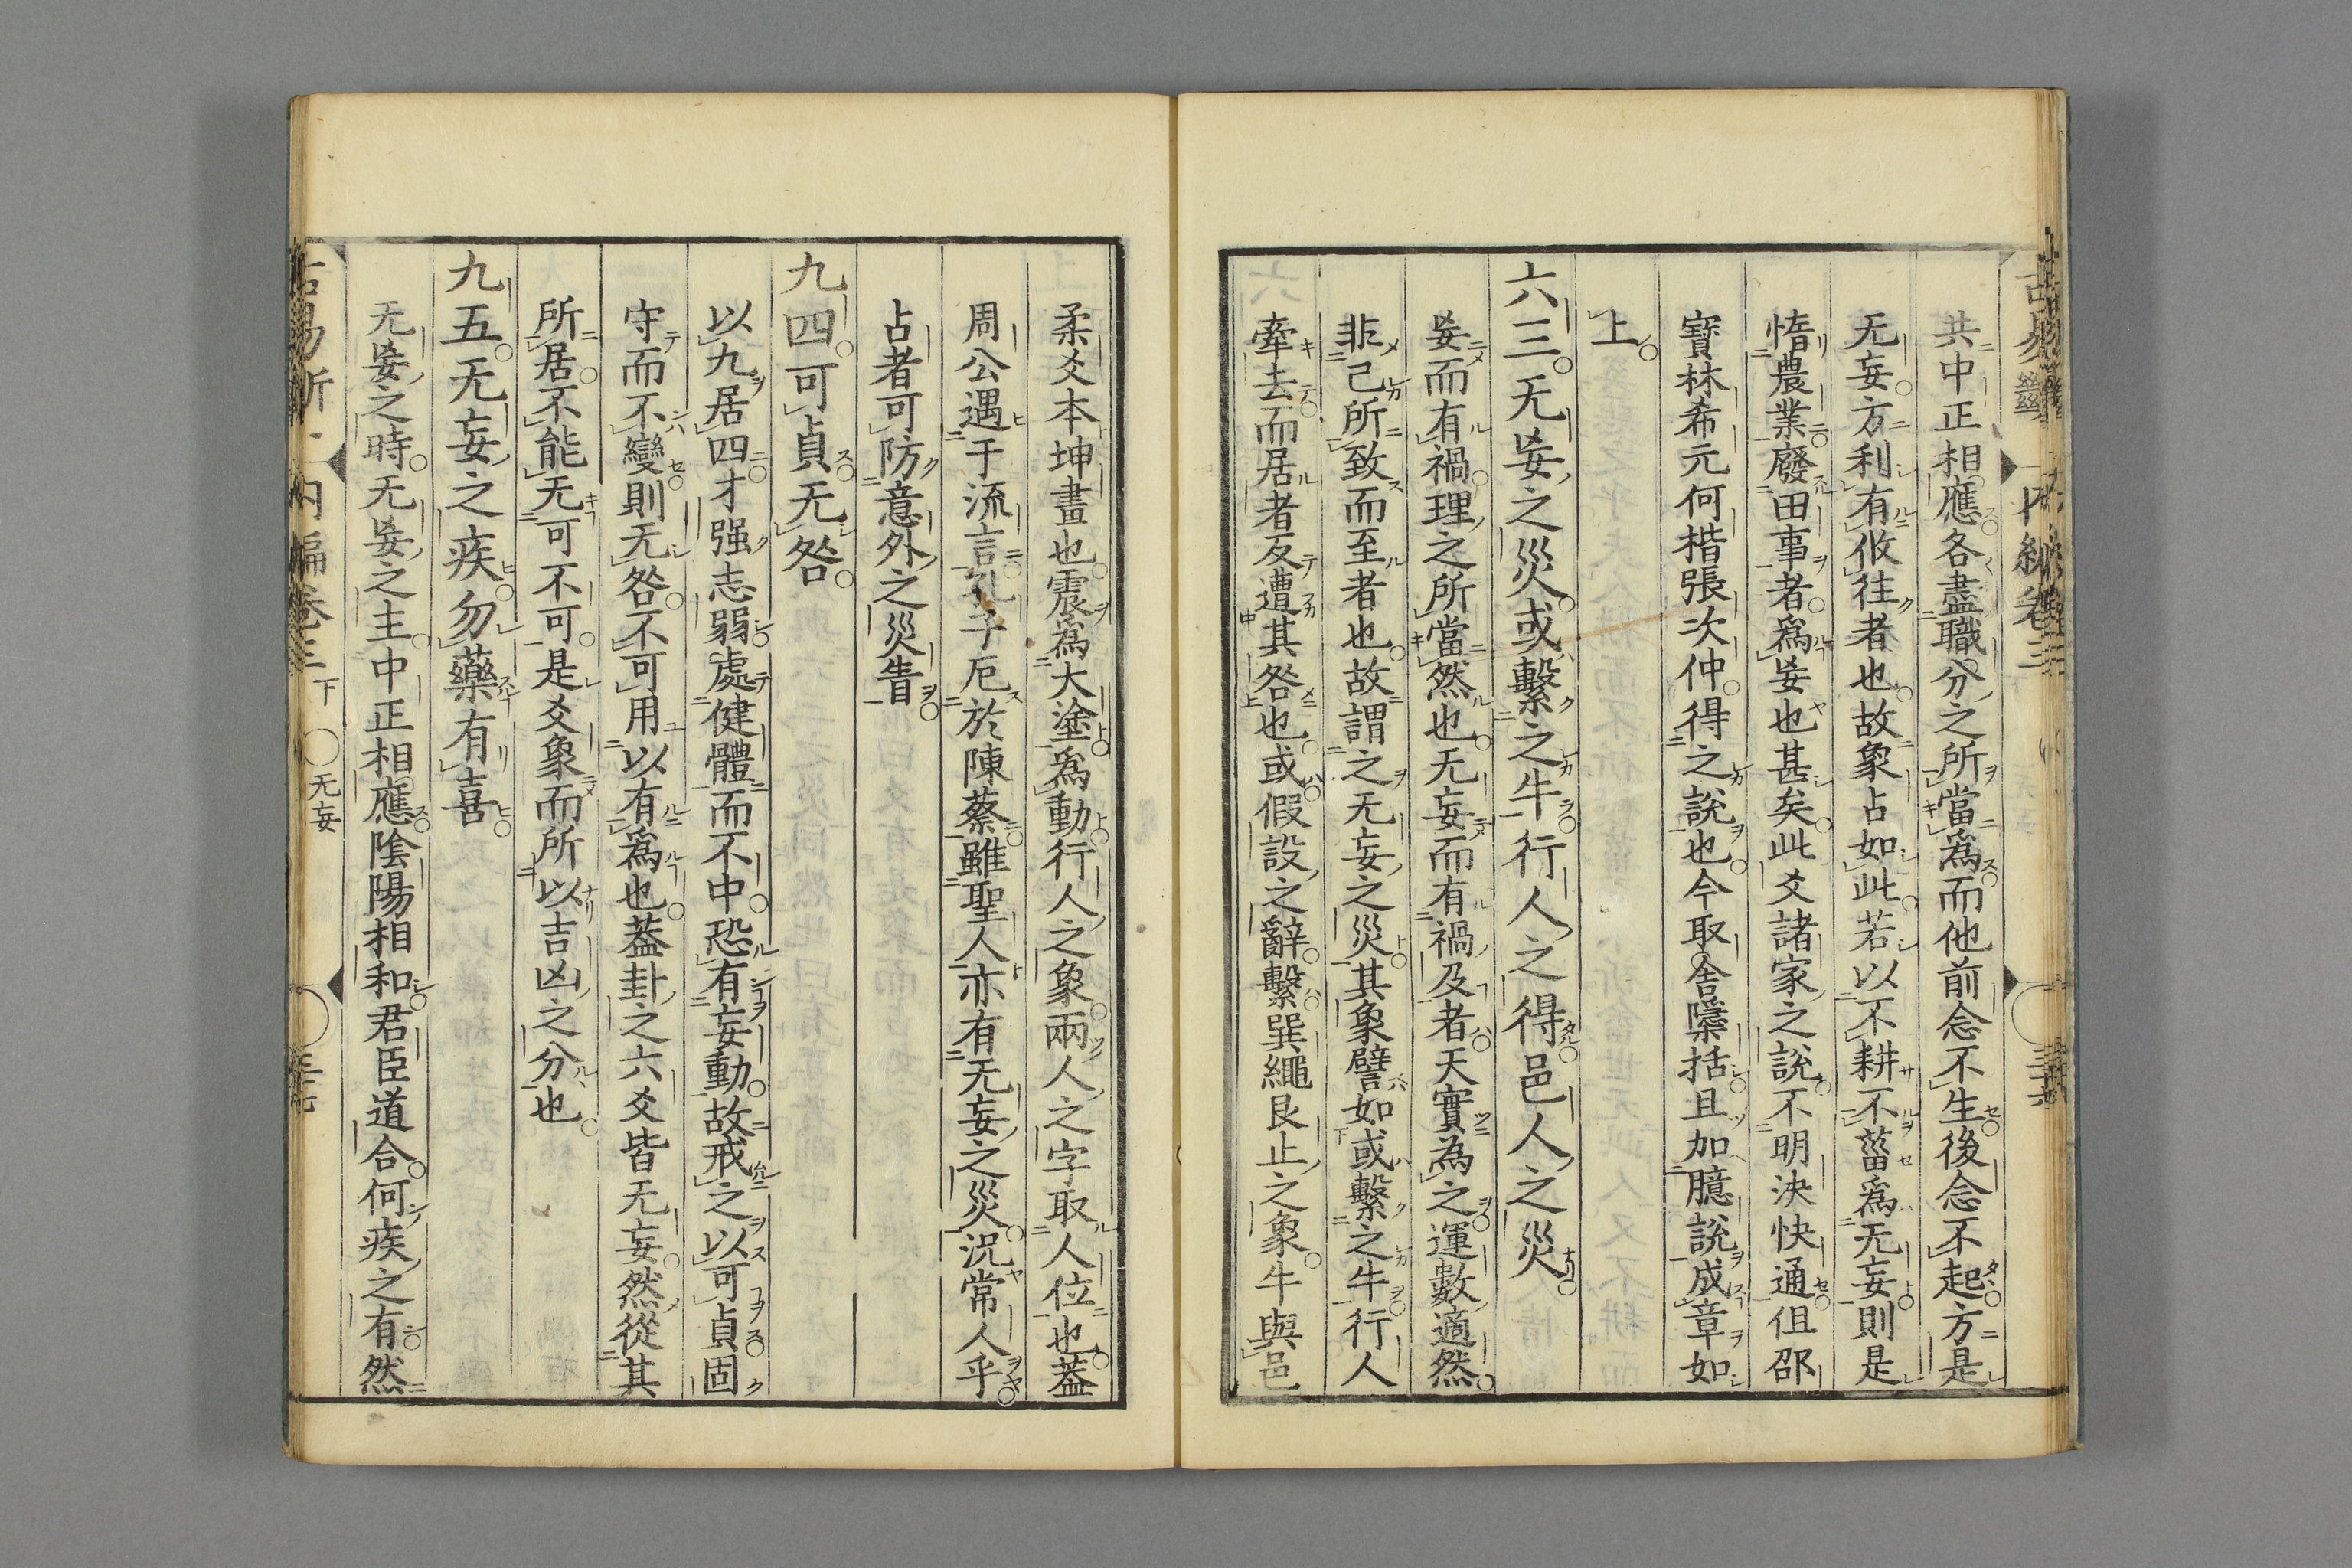 共中正相應各盡職分之所當爲而他前念不生後念不起方是
无妄方利有攸往者也故象占如此若以不耕不菑爲无妄則是
惰農業廢田事者爲妄也甚矣此爻諸家之說不明決快通但邵
寶林希元何楷張次仲得之說也今取舍檃括且加臆說成章如
上
六三无妄之災或繫之牛行人之得邑人之災
妄而有禍理之所當然也无妄而有禍及者天實為之運數適然
非己所致而至者也故謂之无妄之災其象譬如或繫之牛行人
牽去而居者反遭其咎也或假設之辭繫巽繩艮止之象牛與邑
柔爻本坤畫也震爲大塗爲動行人之象兩人之字取人位也蓋
周公遇于流言孔子厄於陳蔡雖聖人亦有无妄之災況常人乎
占者可防意外之災眚
九四可貞无咎
以九居四才强志弱處健體而不中恐有妄動故戒之以可貞固
守而不變則无咎不可用以有爲也蓋卦之六爻皆无妄然從其
所居不能无可不可是爻象而所以吉凶之分也
九五无妄之疾勿藥有喜
无妄之時无妄之主中正相應陰陽相和君臣道合何疾之有然
古易斷 內編卷三 下 无妄